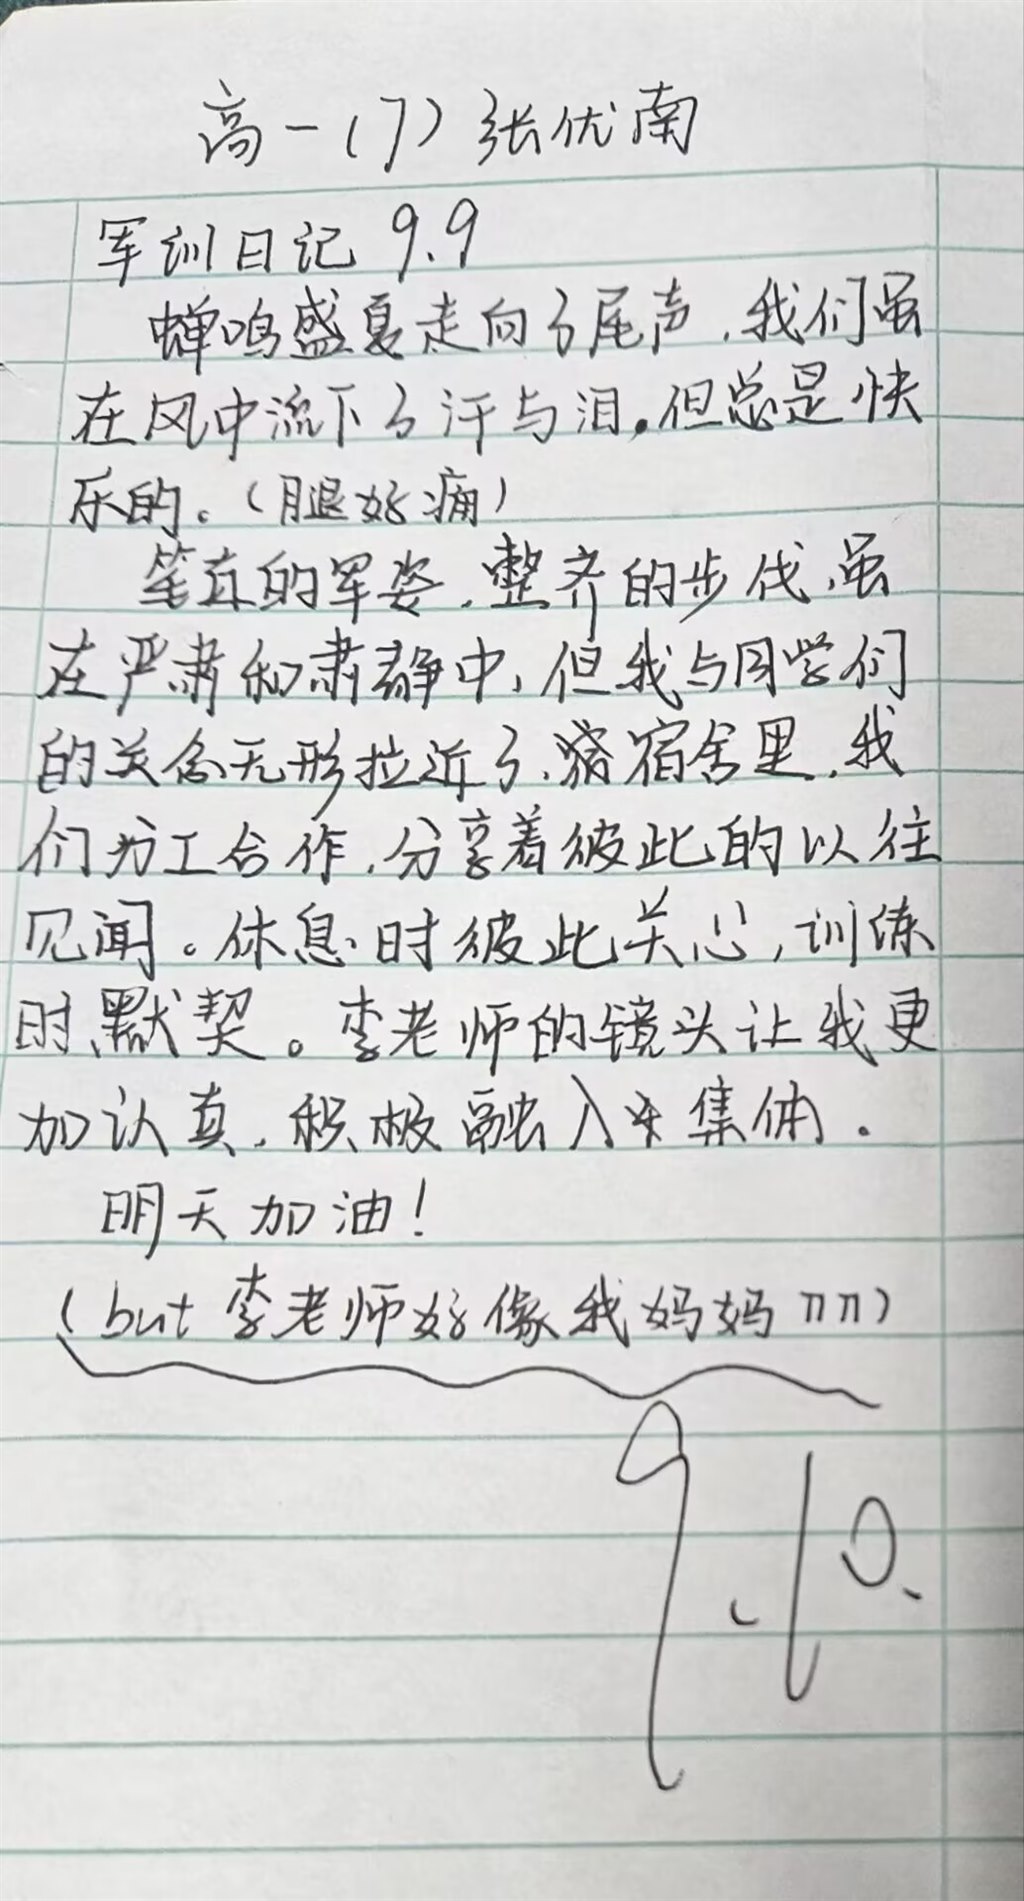 高一(7) 张优南
军训日记 9.9
蝉鸣盛夏走向了尾声,我们虽
在风中流下了汗与泪。但总是快
乐的。(腿好痛)
笔直的军姿,整齐的步伐,虽
在严肃和肃静中,但我与同学们
的关念无形拉近了,宿舍里,我
们分工合作,分享着彼此的以往
见闻。休息时彼此关心,训练
时默契。李老师的镜头让我更
加认真,积极融入集体。
明天加油!
(but 李老师好像我妈妈 ππ)
9.10.